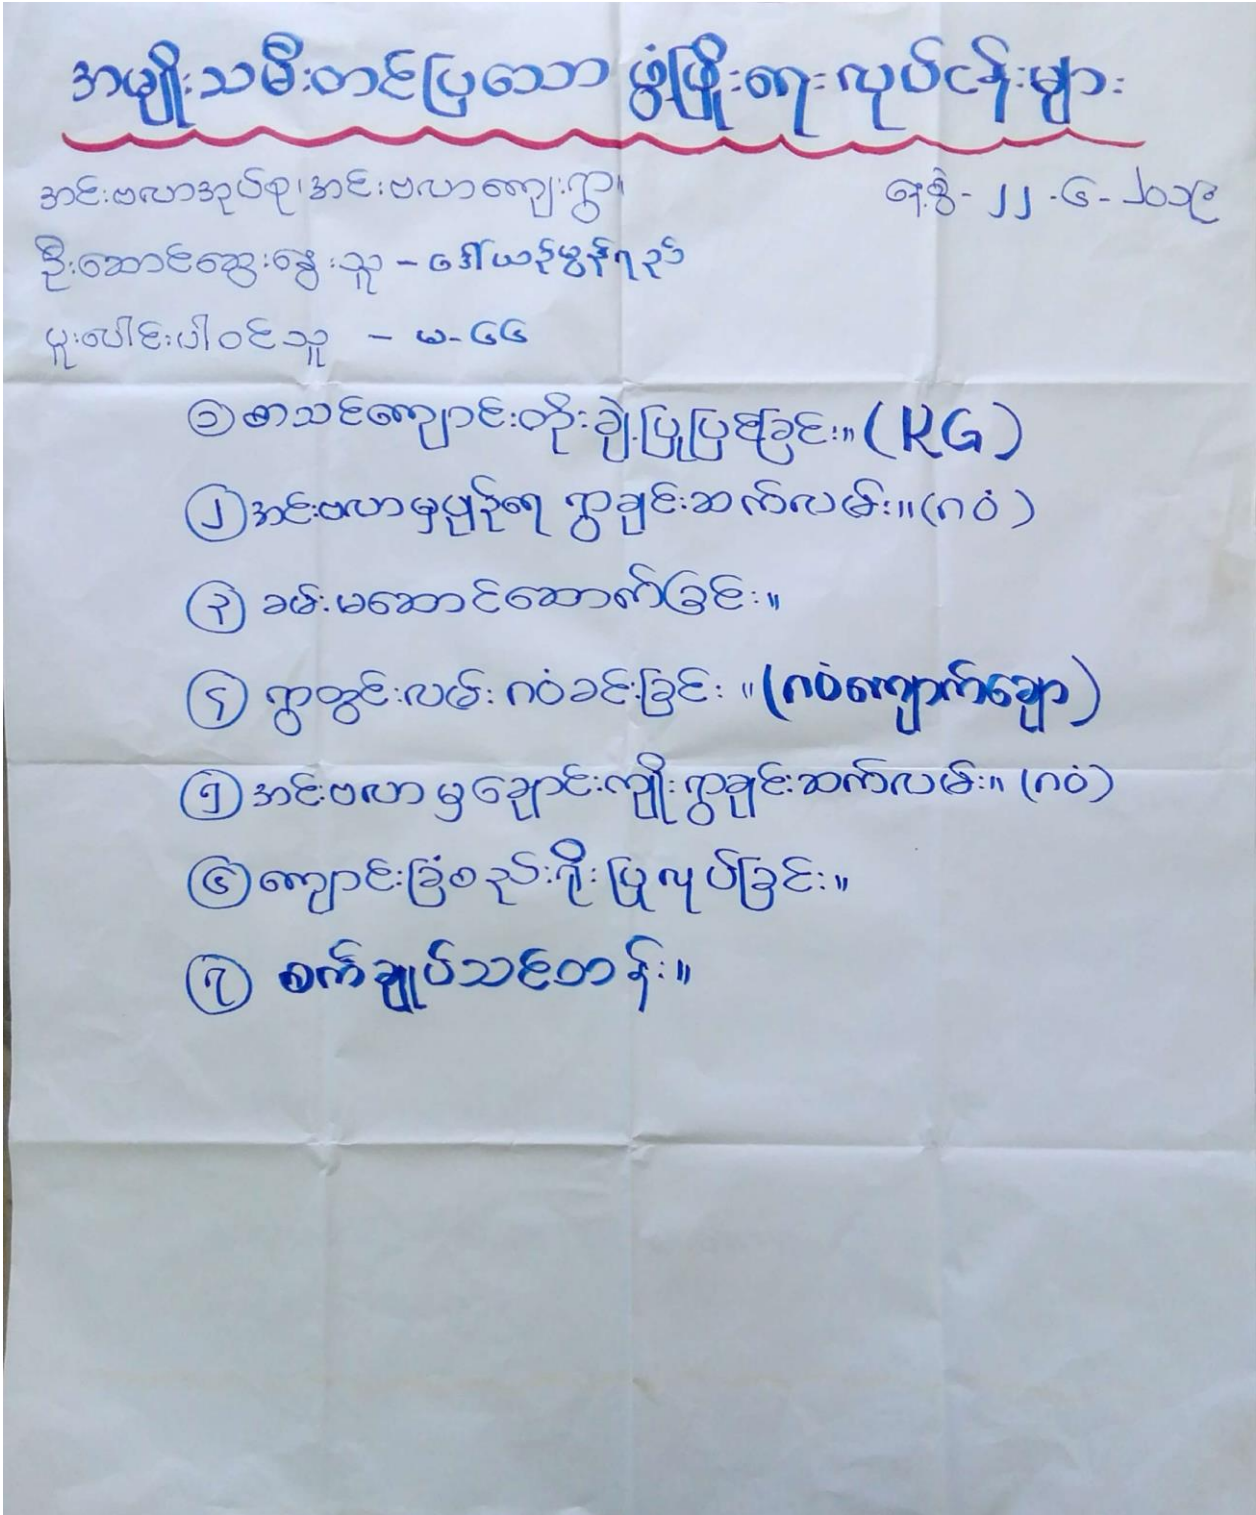 အမျိုးသမီးတင်ပြသော ဖွံ့ဖြိုးရေးလုပ်ငန်းများ
အင်းဗလာအုပ်စု၊ အင်းဗလာကျေးရွာ။ နေ့စွဲ - ၂၂ - ၆ - ၂၀၁၉
ဦးဆောင်ဆွေးနွေးသူ - ဒေါ်ယဉ်မွန်ရည်
ပူးပေါင်းပါဝင်သူ - မ - ၆၆
၁ စာသင်ကျောင်းတိုးချဲ့ပြုပြင်ခြင်း။ (KG)
၂ အင်းဗလာမှပျဉ်ရေ ရွာချင်းဆက်လမ်း။ (ဂဝံ)
၃ ခမ်းမဆောင်ဆောက်ခြင်း။
၄ ရွာတွင်းလမ်း ဂဝံခင်းခြင်း ။ (ဂဝံကျောက်ချော)
၅ အင်းဗလာ မှ ချောင်းကျိုး ရွာချင်းဆက်လမ်း။ (ဂဝံ)
၆ ကျောင်းခြံစည်းရိုး ပြုလုပ်ခြင်း။
၇ စက်ချုပ်သင်တန်း။